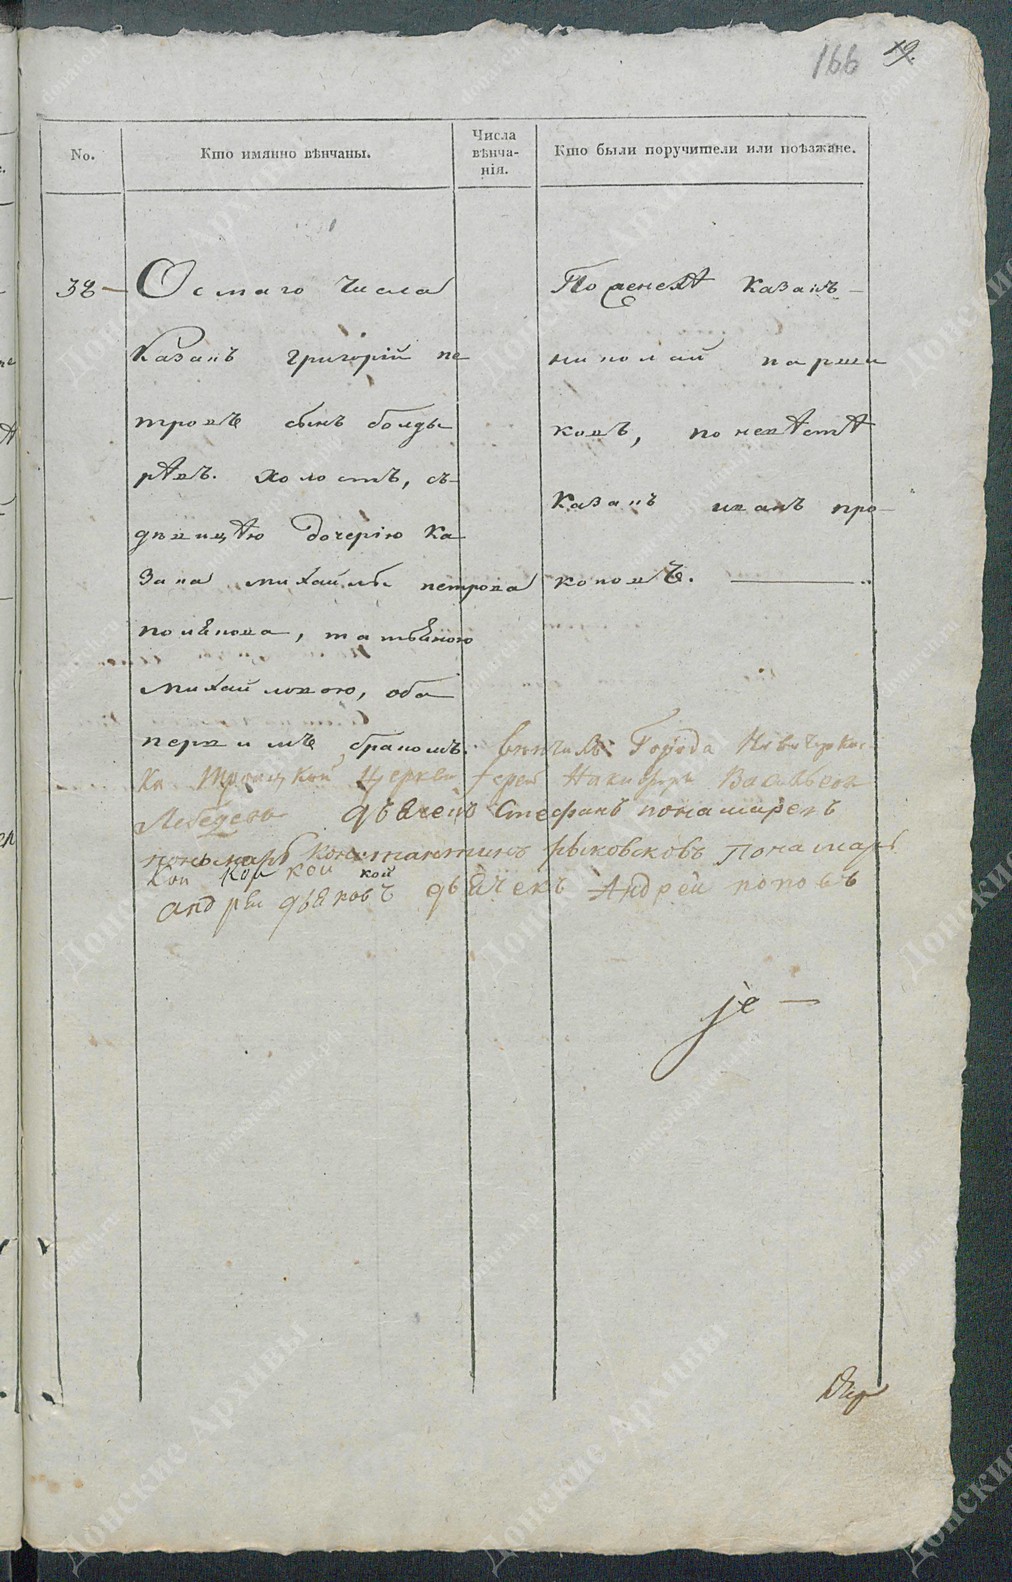 166 19.
No.
Кто имянно вѣнчаны.
Числа
вѣнча-
нія.
Кто были поручители или поѣзжане.
38 – Осмаго числа
Казакъ григорій пе
тровъ сынъ болды
рѣвъ. холостъ, съ
дѣвицѣю дочерію ка
зака михайлы петрова
полѣнова, татьяною
михайловою, оба
первимъ бракомъ.
По женехѣ казакъ –
николай парши
ковъ, по невѣстѣ
казакъ иванъ про–
коповъ.
вѣнчалъ Города Новочеркас
ка Троицкой Церкви Iерей Никифоръ Васильевъ
Лебедевъ дьячекъ Стефанъ понамаревъ
пономарь Константинъ рыковсковъ Понамарь
кои кои кои кой
андреи дьяковъ дьячекъ Андреи поповъ
је –
Донские Архивы
donarch.ru
донскиеархивы.рф